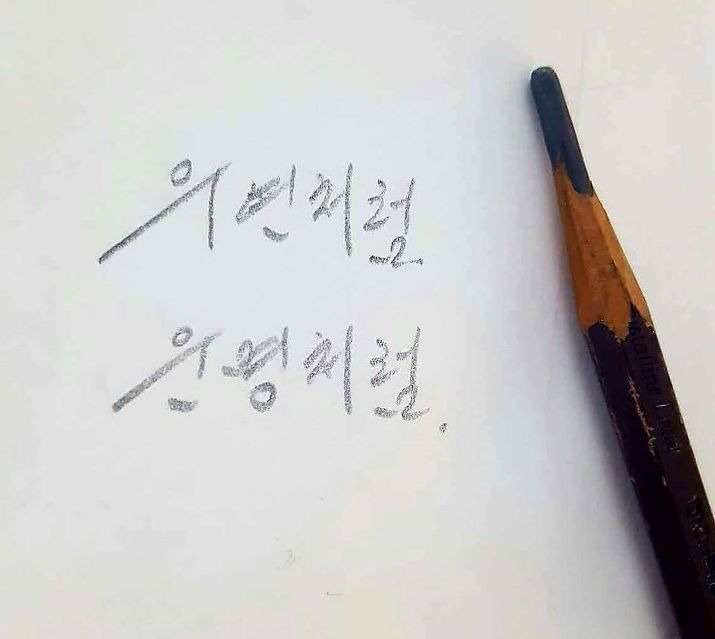 우연처럼
운명처럼.